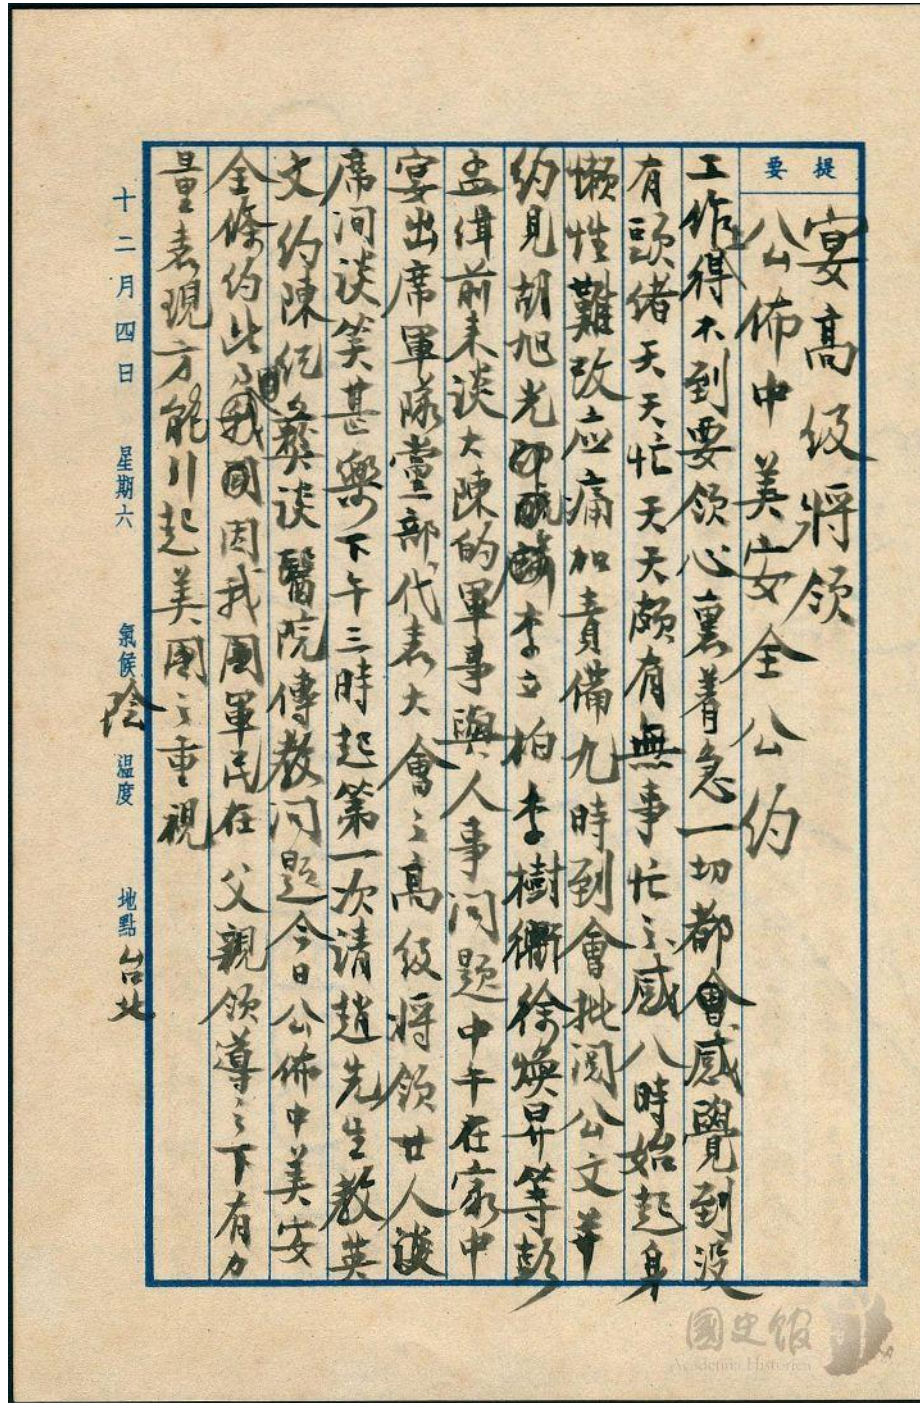 提要
宴高级將领
公佈中美安全公約
工作得不到要领心裏着急一切都會感覺到没
有頭绪天天忙天天頗有無事忙之感八時始起身
懒性難改应痛加責備九時到會批阅公文並
约見胡旭光邱毓麟李立柏李樹衢徐煥昇等彭
孟缉前来谈大陳的軍事與人事问題中午在家中
宴出席軍隊黨部代表大會之高级将领廿人談
席间谈笑甚樂下午三時起第一次请趙先生教英
文约陳纪彝谈醫院傳教问題今日公佈中美安
全條约此乃我國因我國軍民在父親领導之下有力
量表現方能引起美國之重視
十二月四日 星期六 氣候 陰 溫度 地點 台北
國史館
Academia Historica